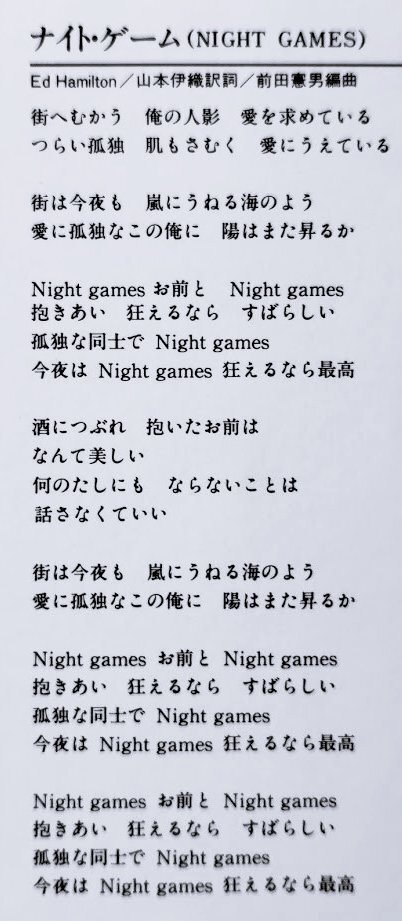 ナイト・ゲーム(NIGHT GAMES)
Ed Hamilton／山本伊織訳詞／前田憲男編曲
街へむかう　俺の人影　愛を求めている
つらい孤独　肌もさむく　愛にうえている
街は今夜も　嵐にうねる海のよう
愛に孤独なこの俺に　陽はまた昇るか
Night games お前と　Night games
抱きあい　狂えるなら　すばらしい
孤独な同士で Night games
今夜は Night games 狂えるなら最高
酒につぶれ　抱いたお前は
なんて美しい
何のたしにも　ならないことは
話さなくていい
街は今夜も　嵐にうねる海のよう
愛に孤独なこの俺に　陽はまた昇るか
Night games お前と Night games
抱きあい　狂えるなら　すばらしい
孤独な同士で Night games
今夜は Night games 狂えるなら最高
Night games お前と Night games
抱きあい　狂えるなら　すばらしい
孤独な同士で Night games
今夜は Night games 狂えるなら最高